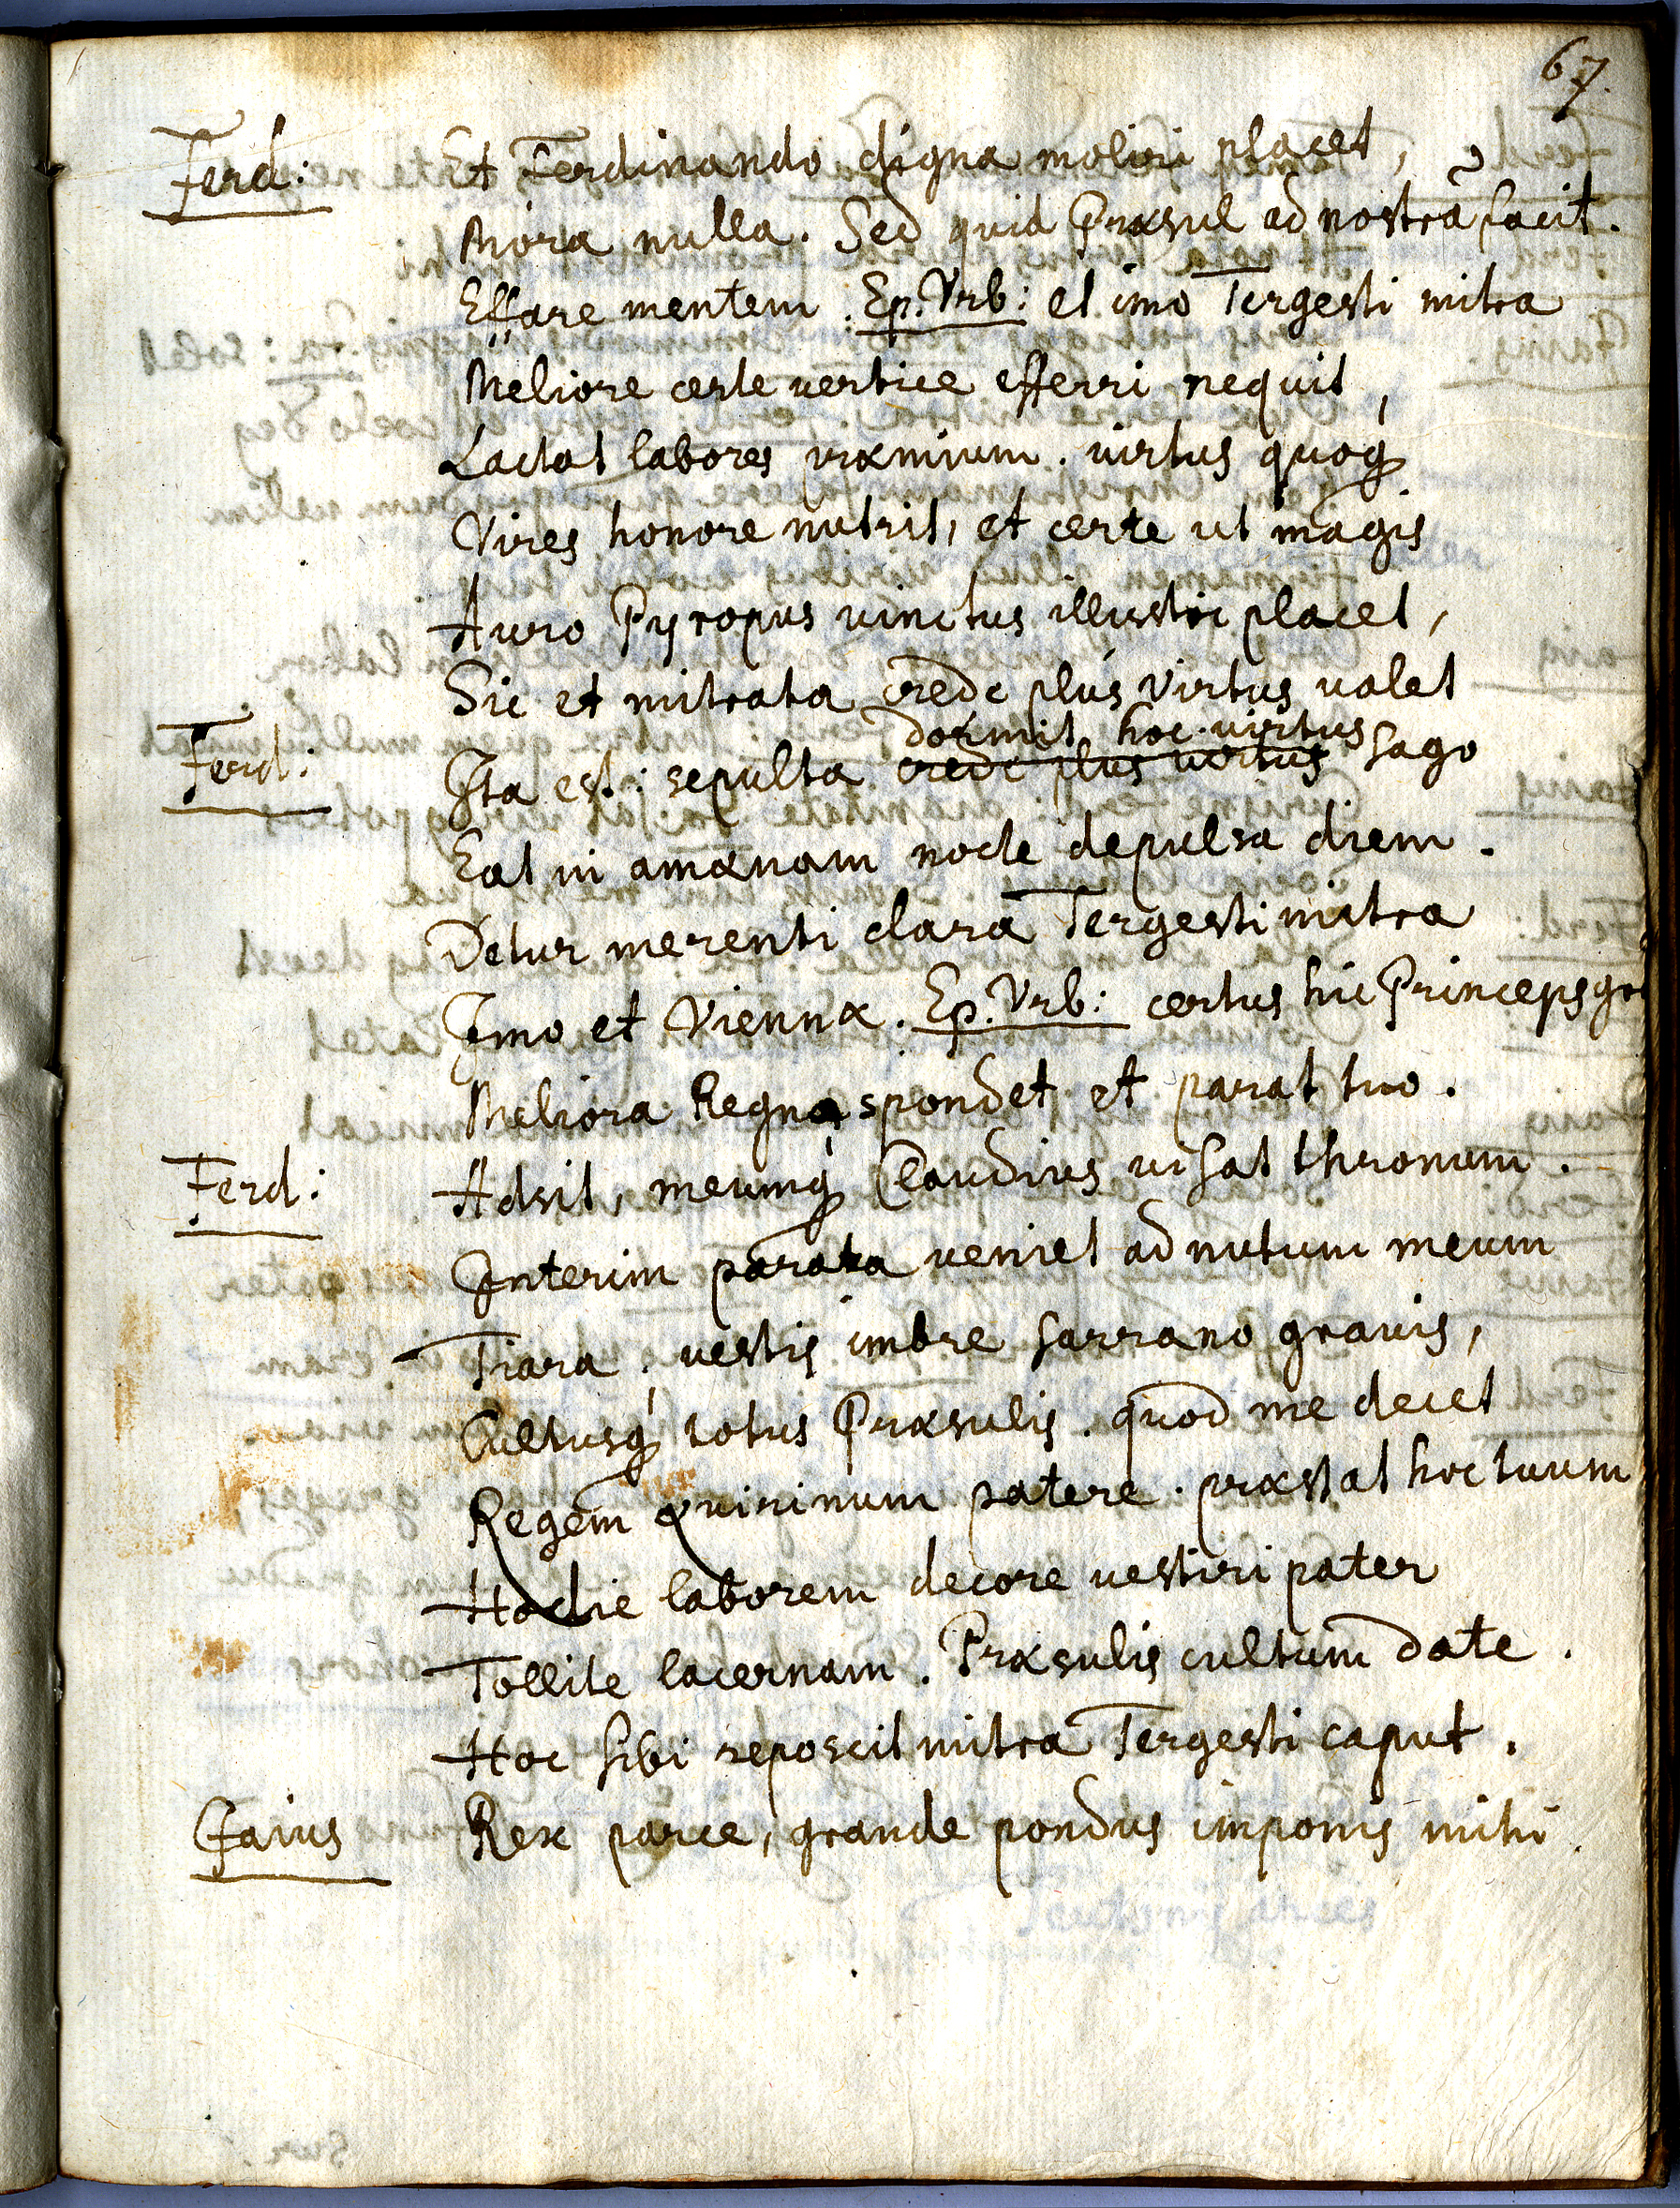 67.
Ferd: Et Ferdinando digna moliri placet,
Mora nulla. Sed quid Præsul ad nostrã facit.
Effare mentem. Ep. Vrb: et imo Tergesti mitra
Meliore certe vertice efferri nequit,
Lactat labores præmium. virtus quoq
Vires honore nutrit, et certe ut magis
Auro Pyropus vinctus illustri placet,
Sic et mitrata crede plus virtus valet
dormit hoc virtus
Ferd: Ita est: sepulta crede plus virtus sago
Eat in amænam nocte depulsa diem.
Detur merenti clara Tergesti mitra
Imo et Viennæ. Ep. Vrb: certus hic Princeps
Meliora Regna spondet et parat tuo.
Ferd: Adsit, meumq Claudius visat thronum.
Interim parata veniet ad nutum meum
Tiara, vestis imbre sarrano gravis,
Cultusq totus Præsulis. quod me decet
Regem Quirinum patere. præstat hoc tuum
Hodie laborem decore vestiri pater
Tollite lacernam. Præsulis cultum date.
Hoc sibi reposcit mitra Tergesti caput.
Gaius Rex parce, grande pondus imponis mihi.